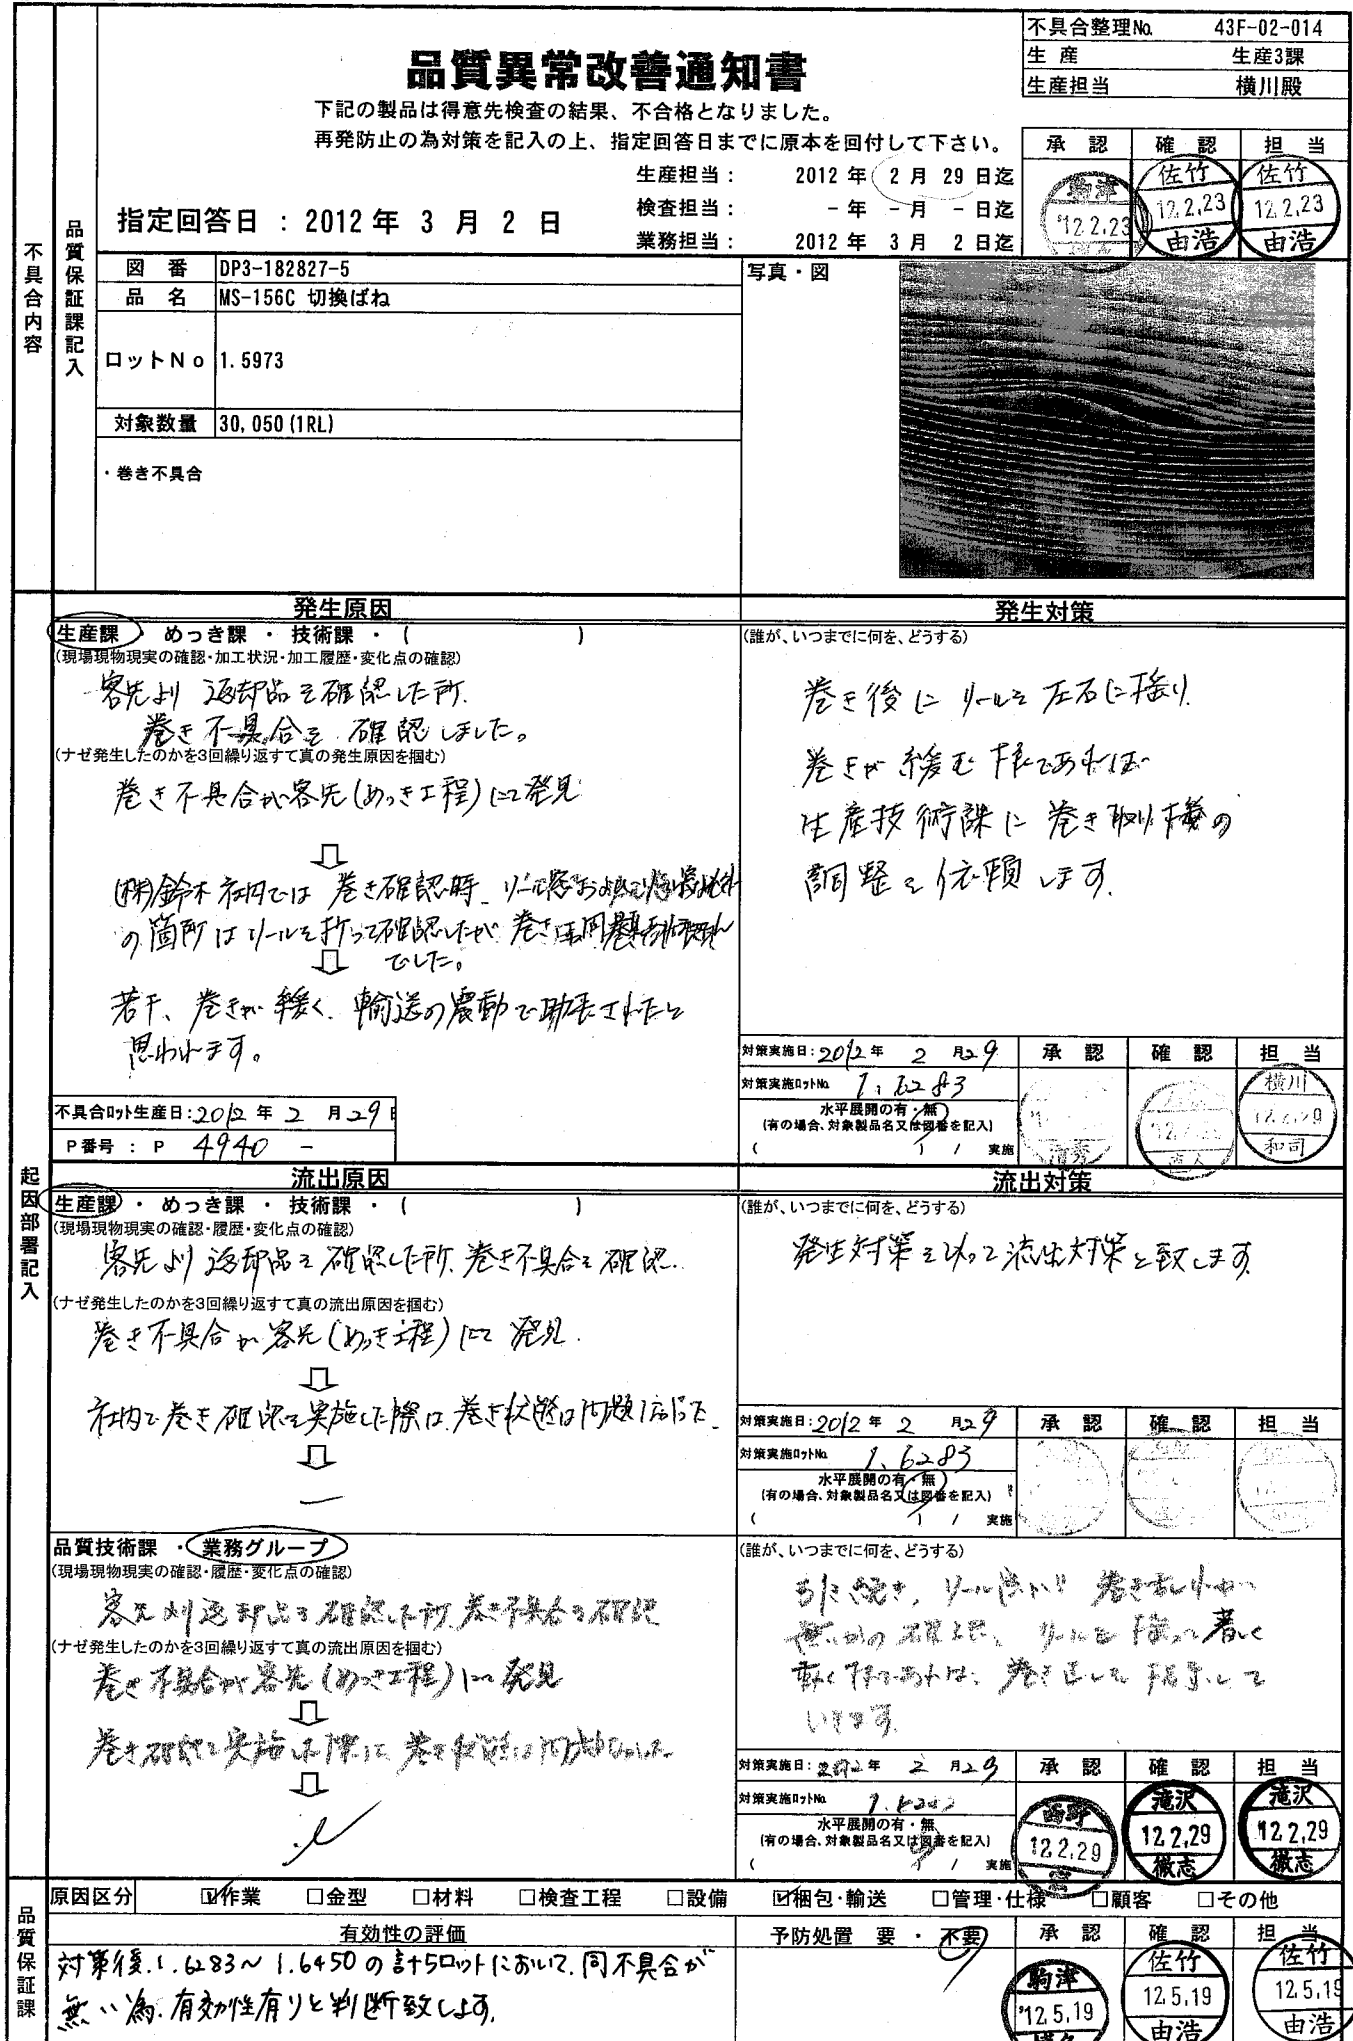 不具合整理No. 43F-02-014
生産 生産3課
生産担当 横川殿
品質異常改善通知書
下記の製品は得意先検査の結果、不合格となりました。
再発防止の為対策を記入の上、指定回答日までに原本を回付して下さい。
承認 確認 担当
生産担当: 2012 年 2 月 29 日迄
検査担当: - 年 - 月 - 日迄
業務担当: 2012 年 3 月 2 日迄
指定回答日 : 2012 年 3 月 2 日
駒津 '12.2.23
佐竹 12.2.23 由浩
佐竹 12.2.23 由浩
不具合内容
品質保証課記入
図番 DP3-182827-5
品名 MS-156C 切換ばね
ロットNo 1.5973
対象数量 30,050(1RL)
・巻き不具合
写真・図
起因部署記入
発生原因
生産課 ・ めっき課 ・ 技術課 ・ ( )
(現場現物現実の確認・加工状況・加工履歴・変化点の確認)
客先より返却品を確認した所、
巻き不具合を確認しました。
(ナゼ発生したのかを3回繰り返すて真の発生原因を掴む)
巻き不具合が客先(めっき工程)にて発見
⇩
(株)鈴木社内では巻き確認時、リール
の箇所はリールを打って確認したが巻きは
でした。
⇩
若干、巻きが緩く、輸送の震動で助長されたと
思われます。
不具合ロット生産日:2012 年 2 月 29 日
P番号 : P 4940 -
発生対策
(誰が、いつまでに何を、どうする)
巻き後にリールを左右に振り
巻きが緩む様であれば
生産技術課に巻き取り機の
調整を依頼します。
対策実施日:2012 年 2 月29
対策実施ロットNo. 1.6283
水平展開の有・無
(有の場合、対象製品名又は図番を記入)
( ) / 実施
承認 確認 担当
横川 12.2.29 和司
流出原因
生産課 ・ めっき課 ・ 技術課 ・ ( )
(現場現物現実の確認・履歴・変化点の確認)
客先より返却品を確認した所、巻き不具合を確認.
(ナゼ発生したのかを3回繰り返すて真の流出原因を掴む)
巻き不具合が客先(めっき工程)にて発見.
⇩
社内で巻き確認を実施した際は、巻き状態は問題なかった.
⇩
—
流出対策
(誰が、いつまでに何を、どうする)
発生対策をもって流出対策と致します
対策実施日:2012 年 2 月29
対策実施ロットNo. 1.6283
水平展開の有・無
(有の場合、対象製品名又は図番を記入)
( ) / 実施
承認 確認 担当
品質技術課 ・ 業務グループ
(現場現物現実の確認・履歴・変化点の確認)
客先より返却品を確認した所、巻き不具合を確認
(ナゼ発生したのかを3回繰り返すて真の流出原因を掴む)
巻き不具合が客先(めっき工程)にて発見
⇩
巻き確認を実施した際は、巻き状態は問題なかった
⇩
(誰が、いつまでに何を、どうする)
引き続き、リール 巻き
無いかの確認、リールを振って著しく
動く様であれば、巻き直しを指示して
いきます。
対策実施日:2012 年 2 月29
対策実施ロットNo.
水平展開の有・無
(有の場合、対象製品名又は図番を記入)
( ) / 実施
承認 確認 担当
12.2.29
滝沢 12.2.29 徹志
滝沢 12.2.29 徹志
品質保証課
原因区分 ☑作業 □金型 □材料 □検査工程 □設備 ☑梱包・輸送 □管理・仕様 □顧客 □その他
有効性の評価
対策後、1.6283～1.6450の計5ロットにおいて、同不具合が
無い為、有効性有りと判断致します。
予防処置 要 ・ 不要
承認 確認 担当
駒津 '12.5.19
佐竹 12.5.19 由浩
佐竹 12.5.19 由浩